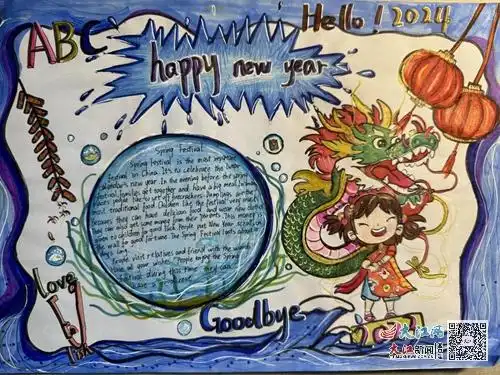 ABC
Hello! 2024
happy new year
Spring Festival
Spring Festival is the most important
festival in China. It's to celebrate the lunar
calendar's new year. In the evening before the spring
festival families get together and have a big meal. In many
places people like to set off firecrackers. Dumplings are the
most traditional food. Children like the festival very much
because they can have delicious food and wear new
can also get some money from their parents. This money is
given to children for good luck. People put New Year
on the wall for good fortune. The Spring Festival lasts about
days long
People visit relatives and friends with the words
all your People enjoy the Spring
Festival during this time they can
have a good rest
Love
Goodbye
大江网
大江新闻